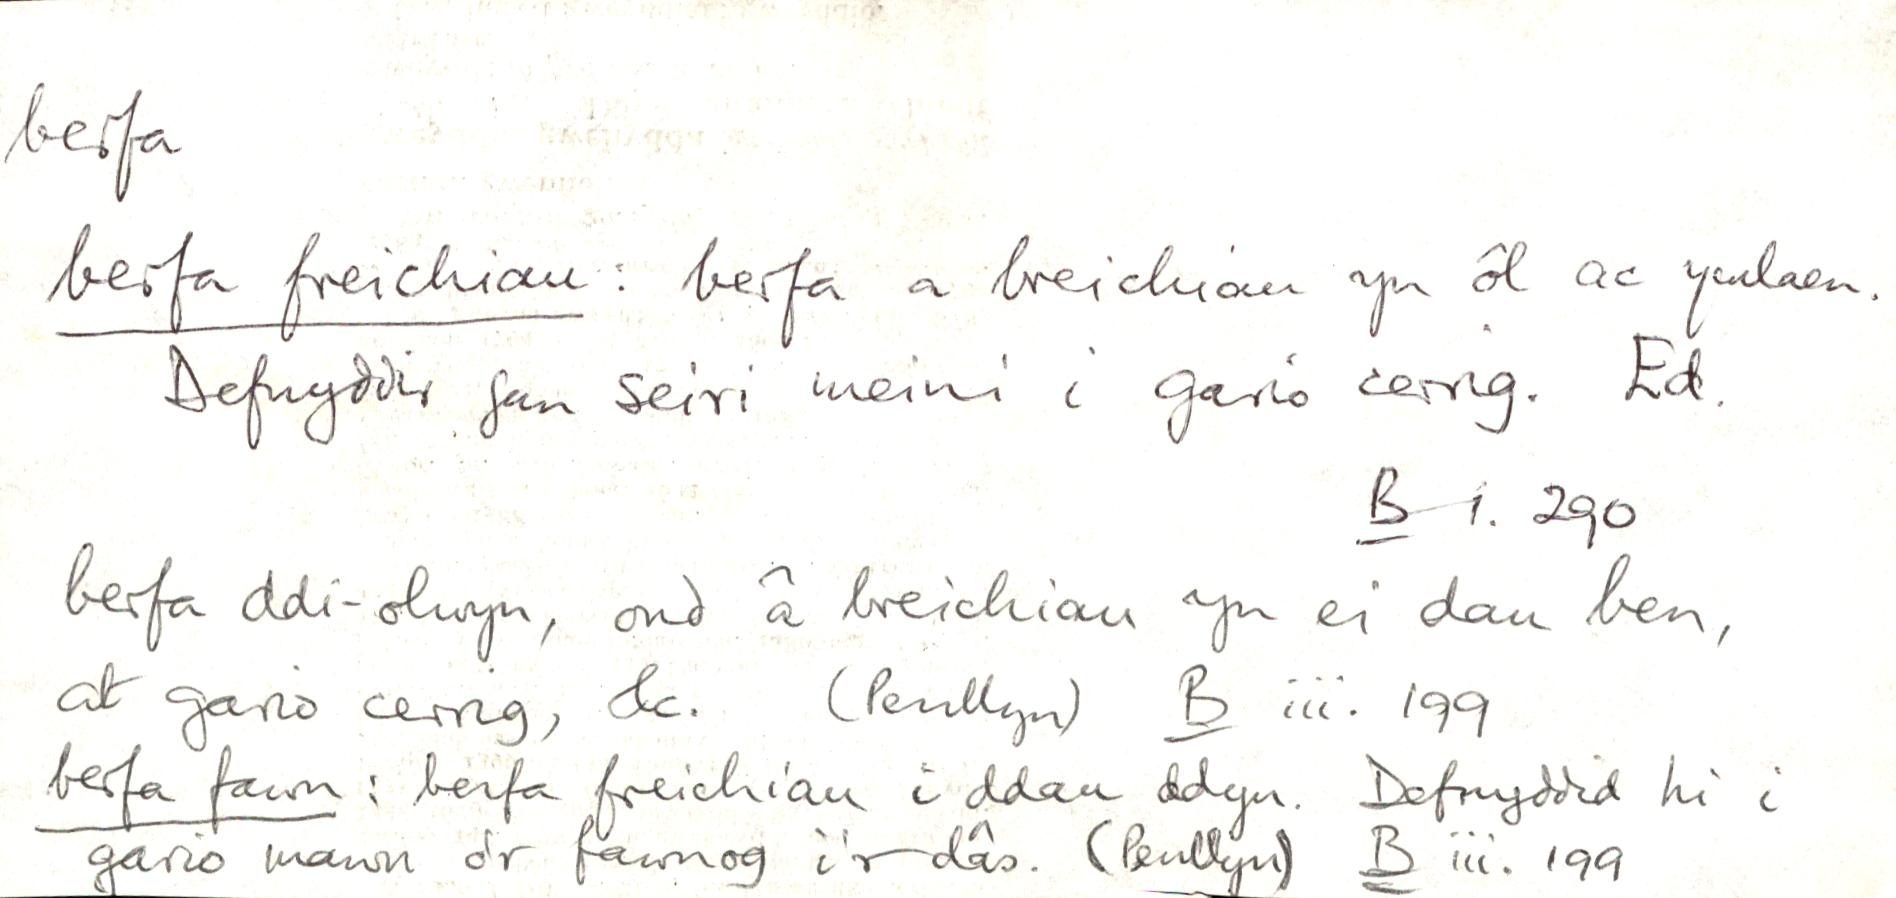 berfa
berfa freichiau : berfa a breichiau yn ôl ac ymlaen.
Defnyddir gan seiri meini i gario cerrig. Ed.
B i. 290
berfa ddi-olwyn, ond â breichiau yn ei dau ben,
at gario cerrig, &c. (Penllyn) B iii. 199
berfa fawn : berfa freichiau i ddau ddyn. Defnyddid hi i
gario mawn o'r fawnog i'r dâs. (Penllyn) B iii. 199